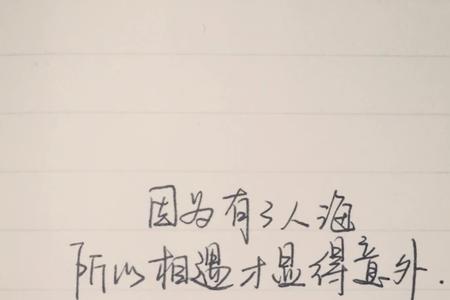 因为有了人海
所以相遇才显得意外.